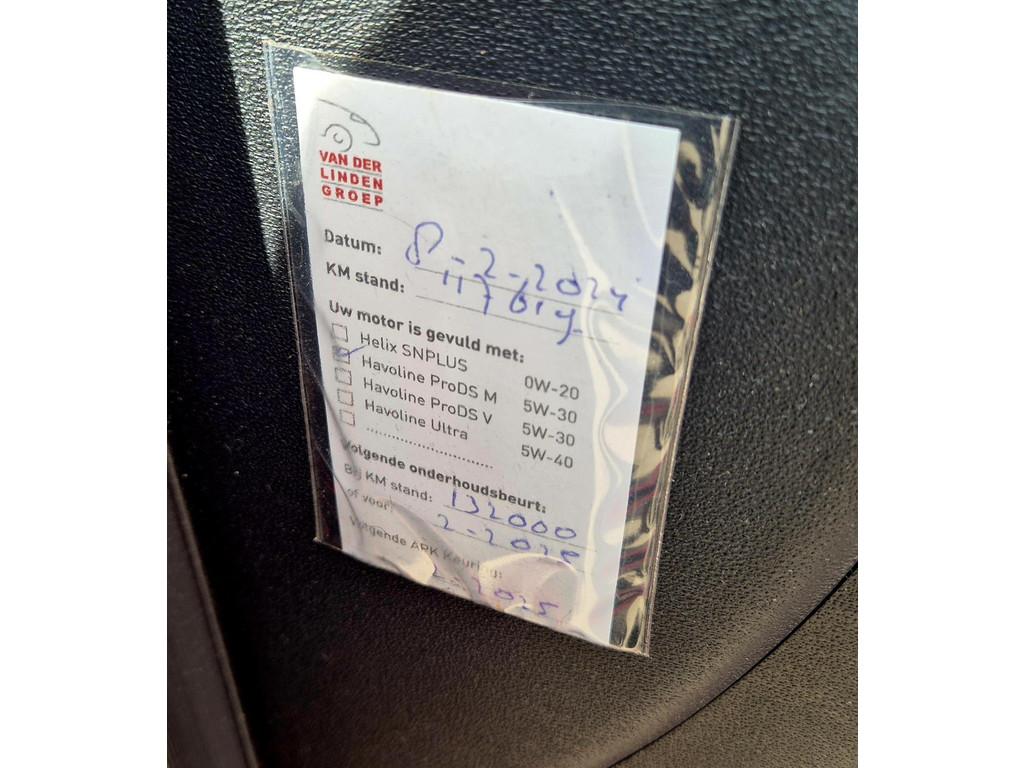 VAN DER
LINDEN
GROEP
Datum: 8-2-2024
KM stand:
Uw motor is gevuld met:
Helix SNPLUS 0W-20
Havoline ProDS M 5W-30
Havoline ProDS V 5W-30
Havoline Ultra 5W-40
Volgende onderhoudsbeurt:
Bij KM stand: 132000
of voor:
Volgende APK Keuring:
2-2025